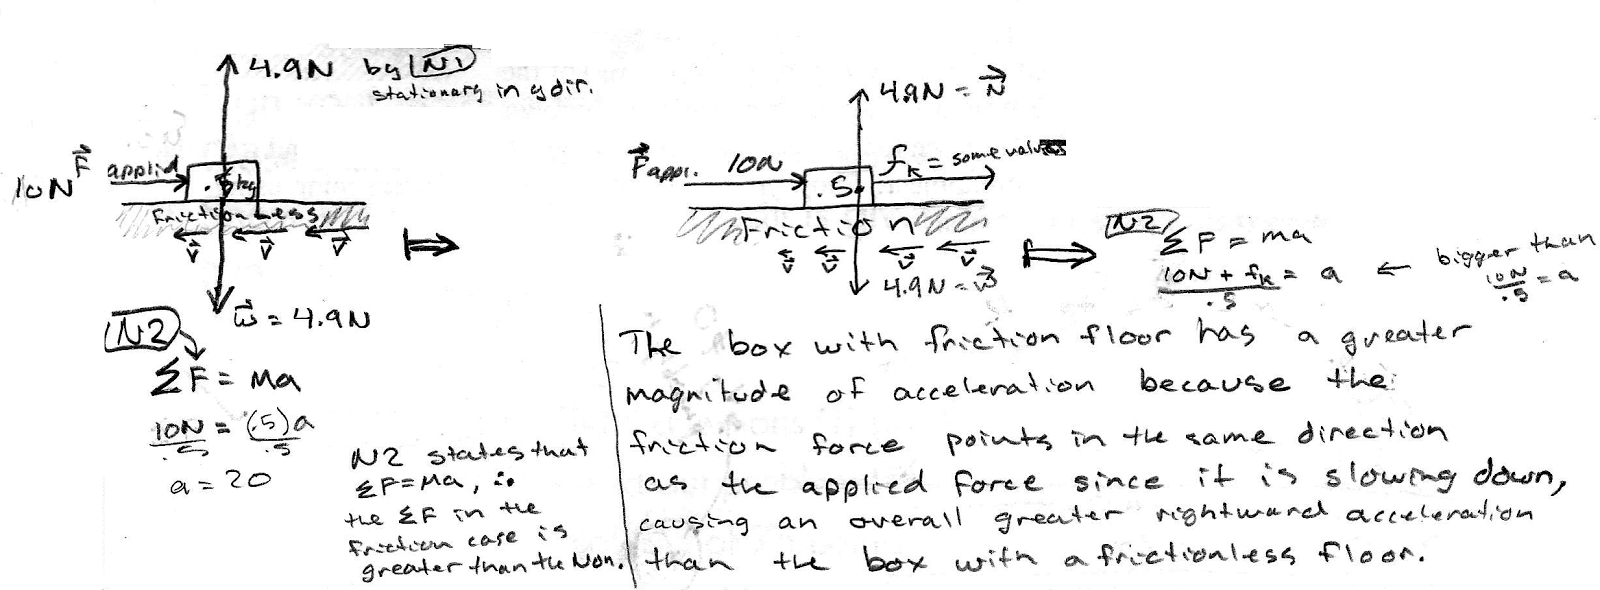 4.9N by N1
stationary in y dir.
10N F applied
.5kg
Frictionless
v v v
w = 4.9N
N2
ΣF = ma
10N = (.5)a
.5 .5
a = 20
N2 states that
ΣF=Ma, ∴
the ΣF in the
friction case is
greater than the Non.
4.9N = N
Fappl. 10N
fk = some value
.5
Friction
v v v v
4.9N = w
N2
ΣF = ma
10N + fk = a ← bigger than
.5
10N = a
.5
The box with friction floor has a greater
magnitude of acceleration because the
friction force points in the same direction
as the applied force since it is slowing down,
causing an overall greater rightward acceleration
than the box with a frictionless floor.